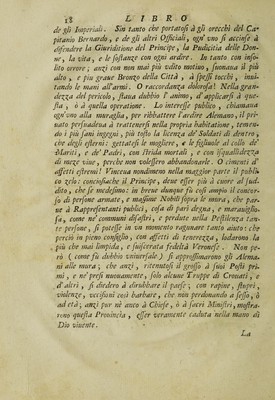 18 LIBRO
de gli Imperiali. Sin tanto che portatosi à gli orecchi del Ca-
pitanio Bernardo, e de gli altri Officiali, ogn' uno si accinse à
difendere la Giuridittione del Principe, la Pudicitia delle Don-
ne, la vita, e le sostanze con ogni ardire. In tanto con inso-
lito errore; anzi con non mai più udito motivo, suonava il più
alto, e più grave Bronzo della Città, à spessi tocchi, invi-
tando le mani all'armi. O raccordanza dolorosa! Nella gran-
dezza del pericolo, stava dubbio l'animo, d'applicarsi à que-
sta, ò à quella operatione. Lo interesse publico, chiamava
ogn'uno alla muraglia, per ribattere l'ardire Alemano, il pri-
vato persuadeva à trattenersi nella propria habitatione, temen-
do i più sani ingegni, più tosto la licenza de' Soldati di dentro,
che degli esterni: gettatesi le mogliere, e le figliuole al collo de'
Mariti, e de' Padri, con stridi mortali, e con isguassidezza
di meze vive, perche non volessero abbandonarle. O cimenti d'
affetti estremi! Vinceva nondimeno nella maggior parte il publi-
co zelo: conciosiache al Principe, deve esser più à cuore al sud-
dito, che se medesimo: in breve dunque fù così ampio il concor-
so di persone armate, e massime Nobili sopra le mura, che par-
ve à Rappresentanti publici, cosa di pari degna, e maraviglio-
sa, come ne' communi disastri, e perdute nella Pestilenza tan-
te persone, si potesse in un momento ragunare tanto aiuto: che
perciò in pieno consiglio, con affetti di tenerezza, lodarono la
più che mai limpida, e sviscerata fedeltà Veronese. Non pe-
rò (come fù dubbio universale) si approssimarono gli Alema-
ni alle mura; che anzi, ritenutosi il grosso à suoi Posti pri-
mi, e ne' presi nuovamente, solo alcune Truppe di Crovati, e
d'altri, si diedero à dirubbare il paese; con rapine, stupri,
violenze, uccisioni così barbare, che non perdonando à sesso, ò
ad età; anzi pur nè anco à Chiese, ò à sacri Ministri, mostra-
rono questa Provincia, esser veramente caduta nella mano di
Dio vivente.
La